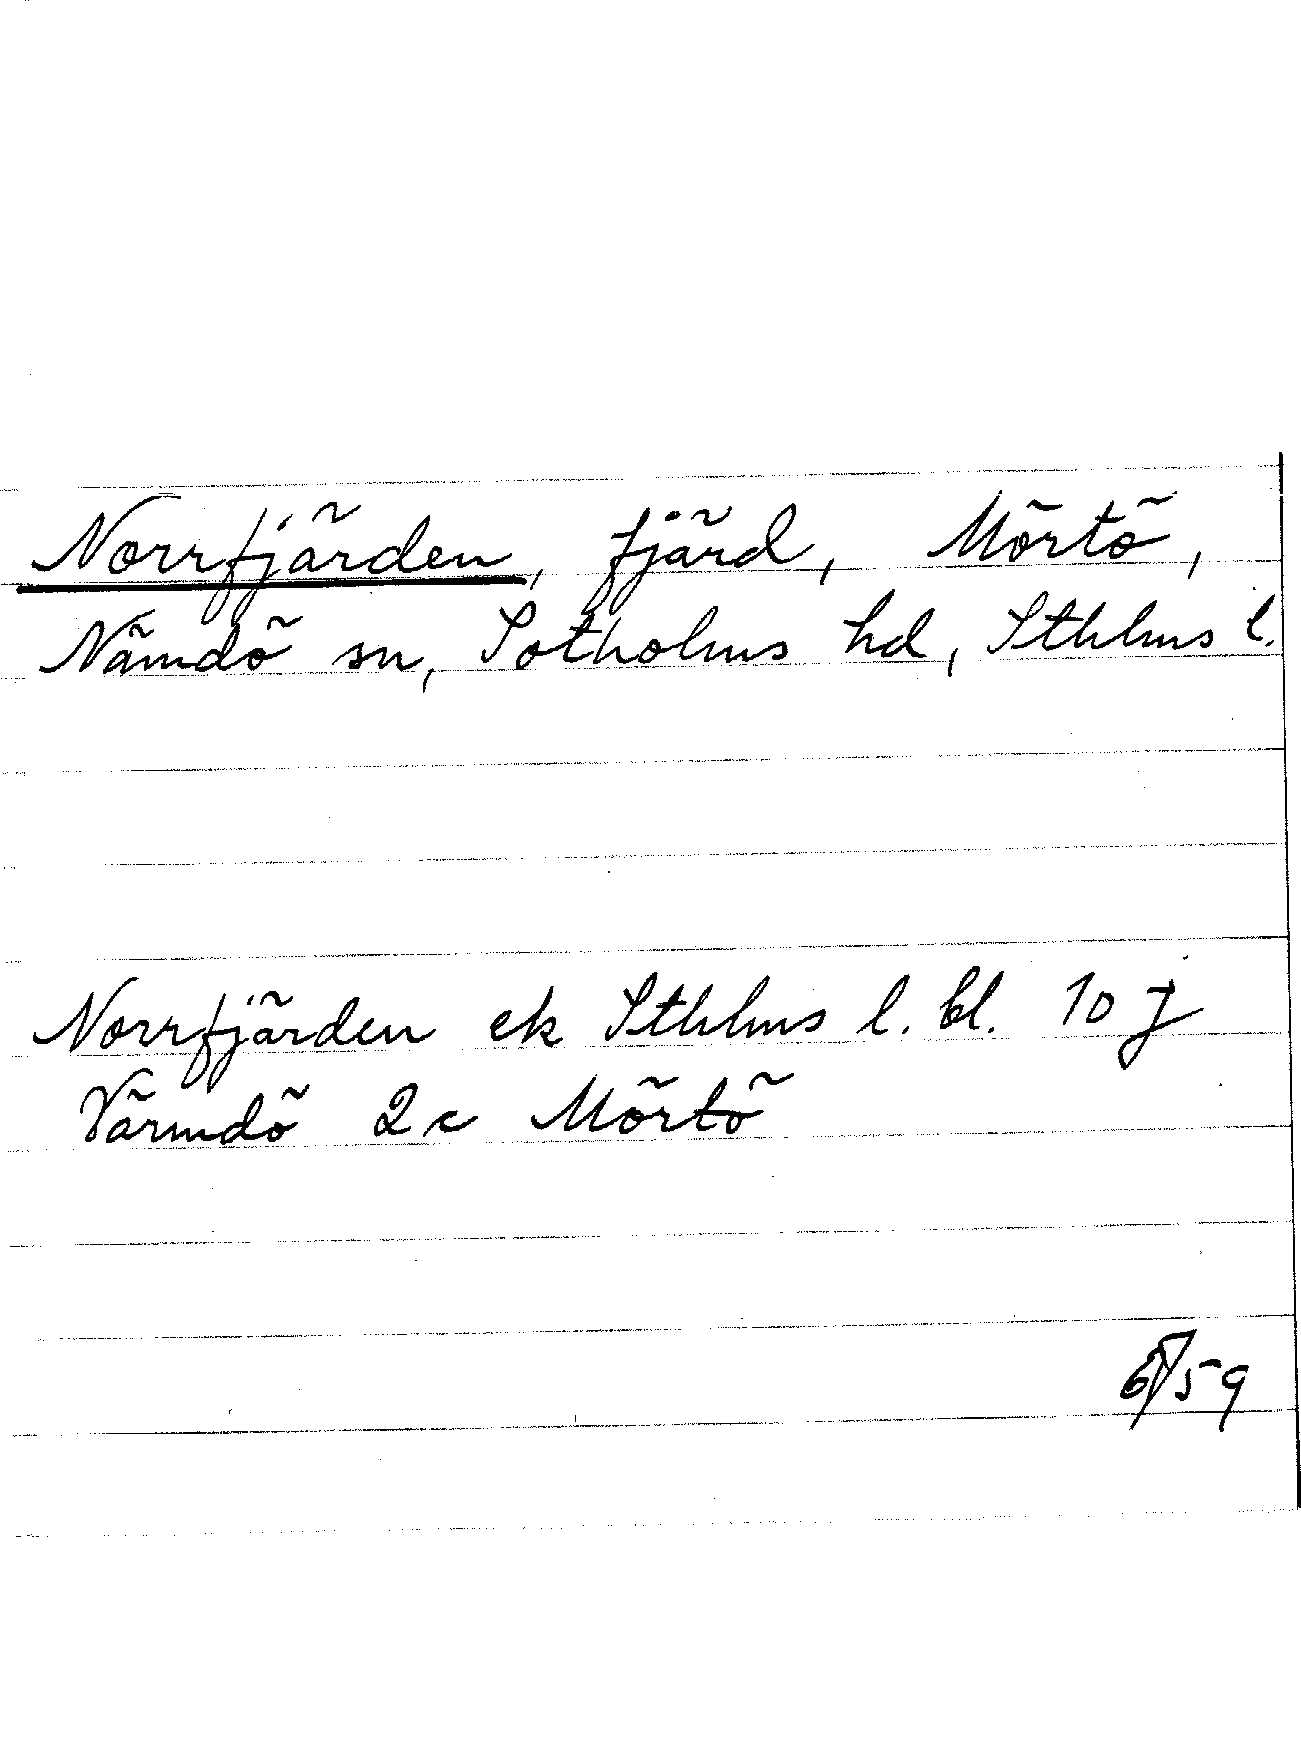 Norrfjärden, fjärd, Mörtö,
Nämdö sn, Sotholms hd, Sthlms l.
Norrfjärden ek Sthlms l. bl. 10 J
Värmdö 2c Mörtö
59